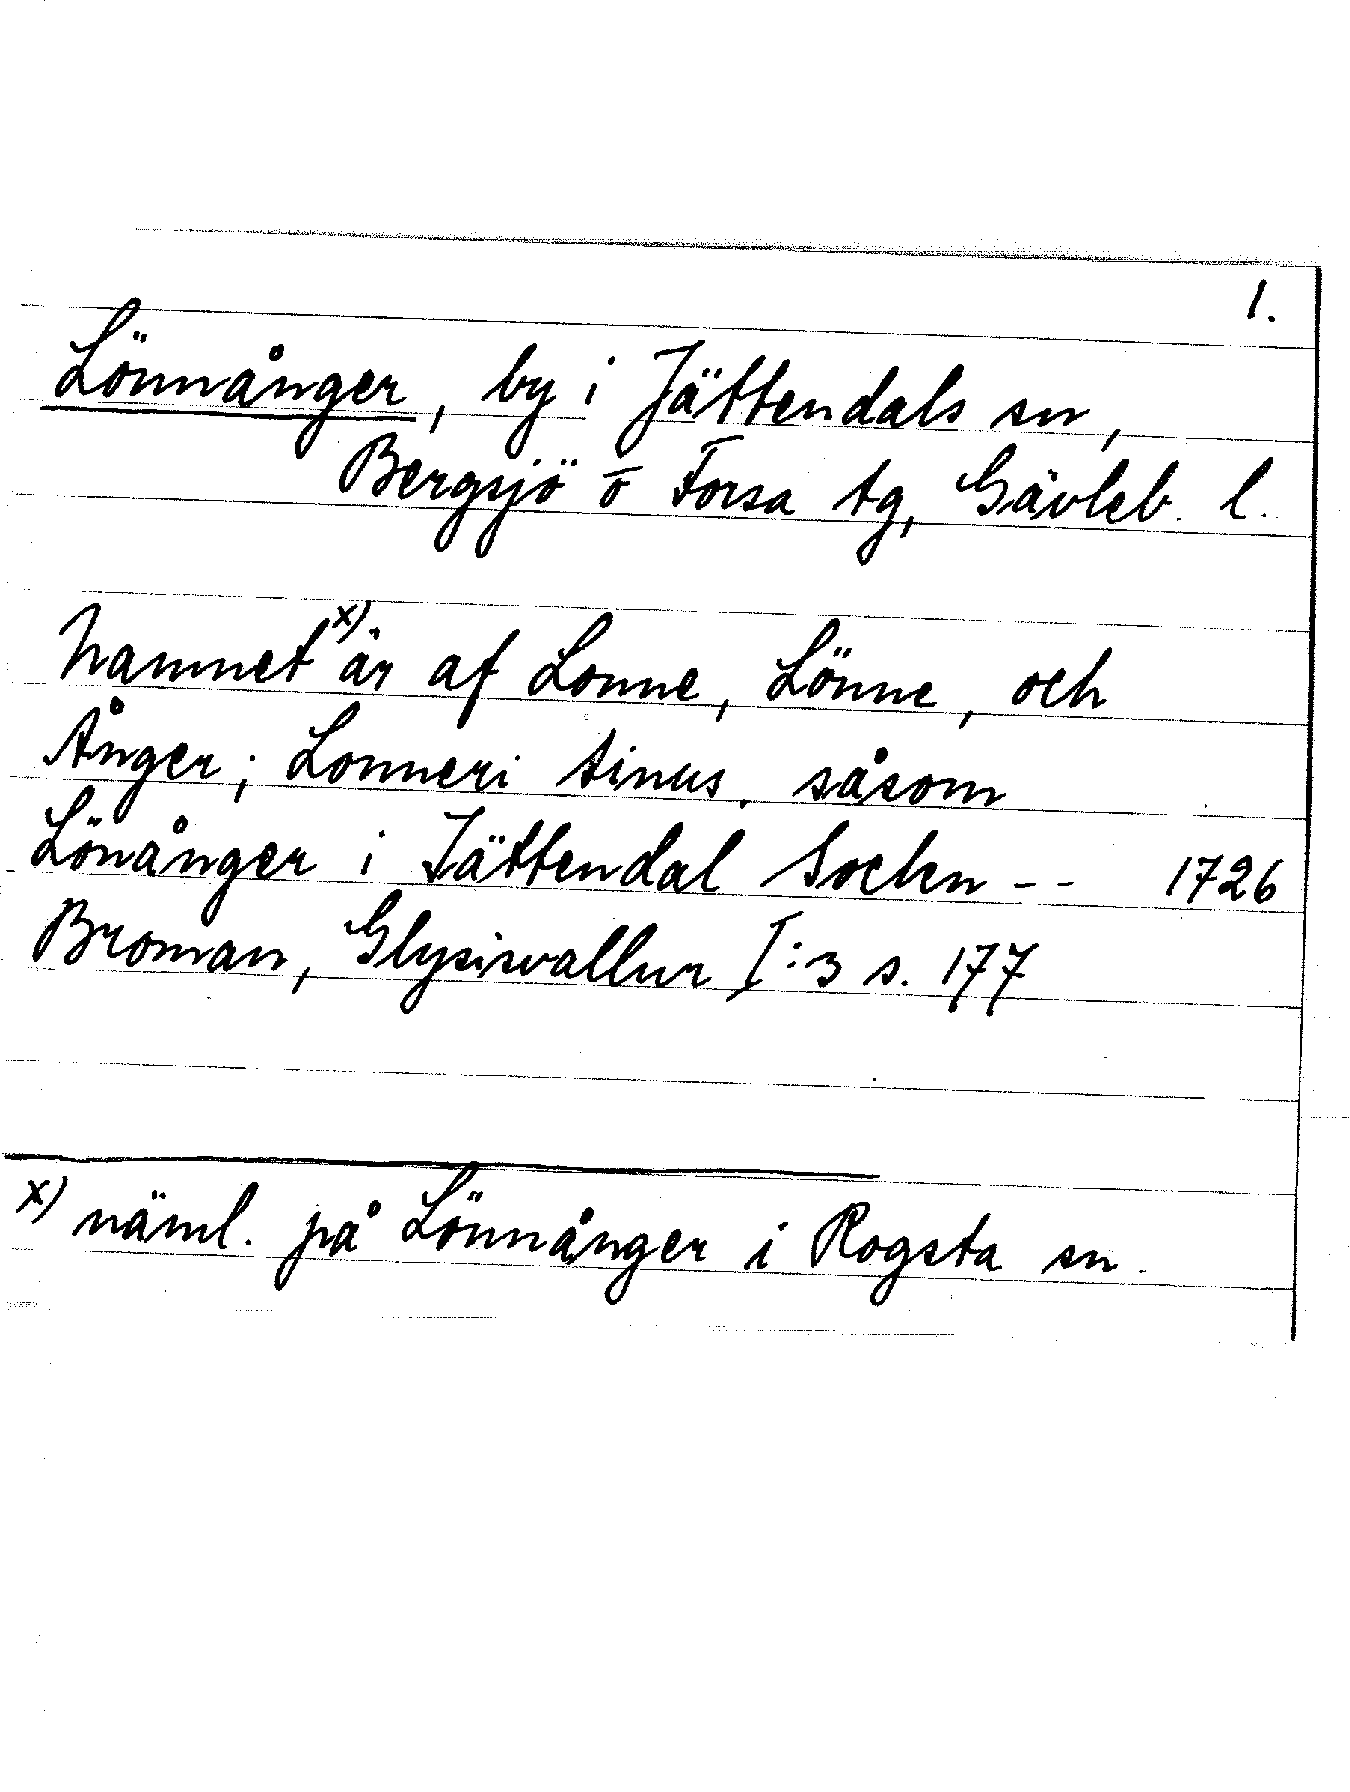 1.
Lönnånger, by i Jättendals sn,
Bergsjö o Forsa tg, Gävleb. l.
Namnet x) är af Lonne, Lönne, och
Ånger; Lonneri sinus. såsom
Lönånger i Jättendal Sockn - - 1726
Broman, Glysisvallur I:3 s. 177
x) näml. på Lönnånger i Rogsta sn.